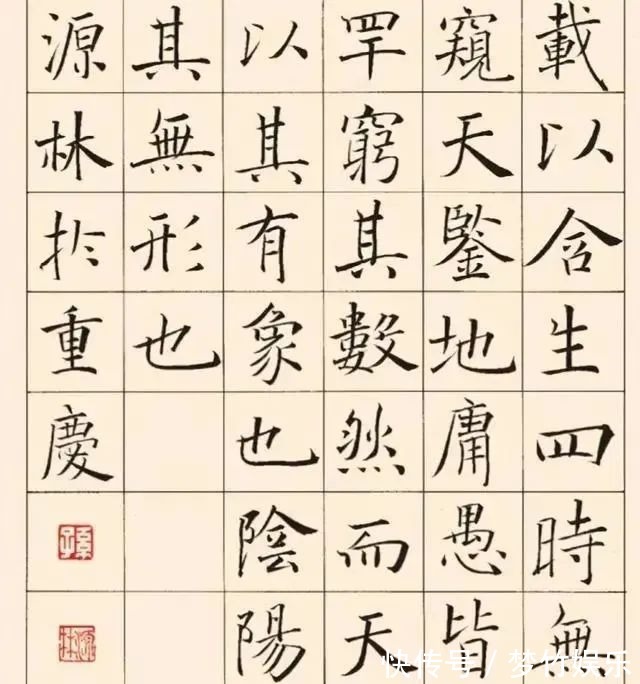 載以含生四時無
窺天鑒地庸愚皆
罕窮其數然而天
以其有象也陰陽
其無形也
源林於重慶
快传号/梦竹娱乐